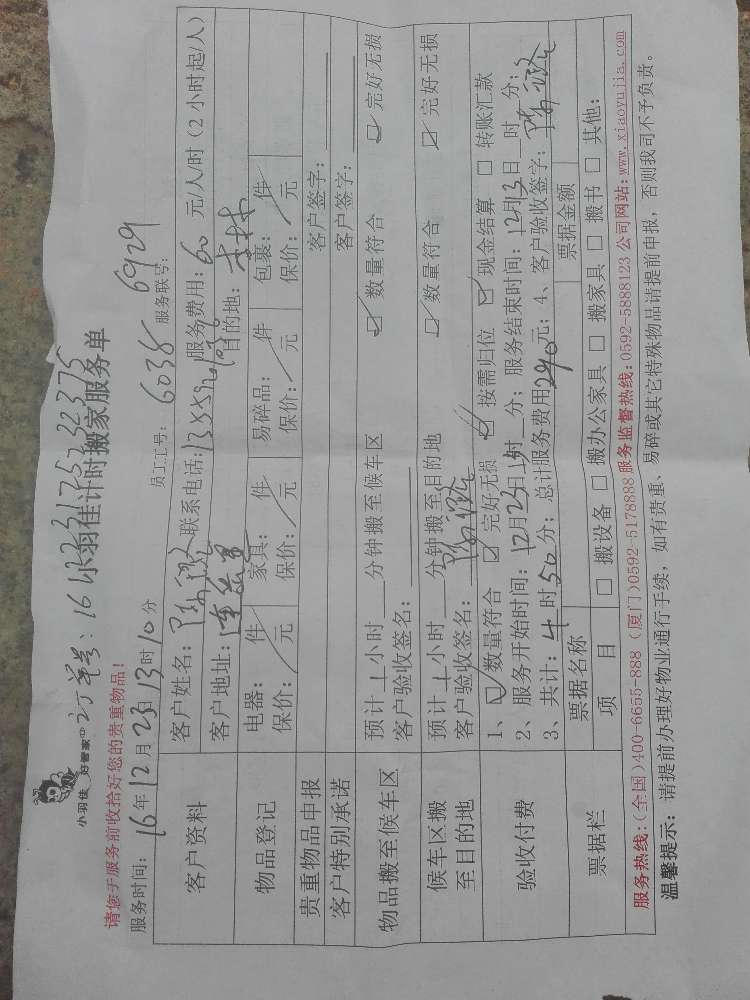 小羽佳 好管家
订单号：
小羽佳计时搬家服务单
请您于服务前收拾好您的贵重物品！
服务时间：16年12月23日13时10分 员工工号：6038 服务联号：6929
客户资料
客户姓名： 联系电话： 服务费用：60元/人/时（2小时起/人）
客户地址： 目的地：
物品登记
电器： 件 家具： 件 易碎品： 件 包裹： 件
保价： 元 保价： 元 保价： 元 保价： 元
贵重物品申报 客户签字：
客户特别承诺 客户签字：
物品搬至候车区
预计 小时 分钟搬至候车区 ☑ 数量符合 ☑ 完好无损
客户验收签名：
候车区搬至目的地
预计 小时 分钟搬至目的地 ☑ 数量符合 ☑ 完好无损
客户验收签名：
验收付费
1、☑ 数量符合 ☑ 完好无损 ☑ 按需归位 ☑ 现金结算 □ 转账汇款
2、服务开始时间：12月23日 时 分；服务结束时间：12月23日 时 分；
3、共计：4时50分；总计服务费用290元；4、客户验收签字：
票据栏
票据名称 票据金额
项 目 □ 搬设备 □ 搬办公家具 □ 搬家具 □ 搬书 □ 其他：
服务热线：（全国）400-6655-888（厦门）0592-5178888 服务监督热线：0592-5888123 公司网站：www.xiaoyujia.com
温馨提示：请提前办理好物业通行手续，如有贵重、易碎或其它特殊物品请提前申报，否则我司不予负责。